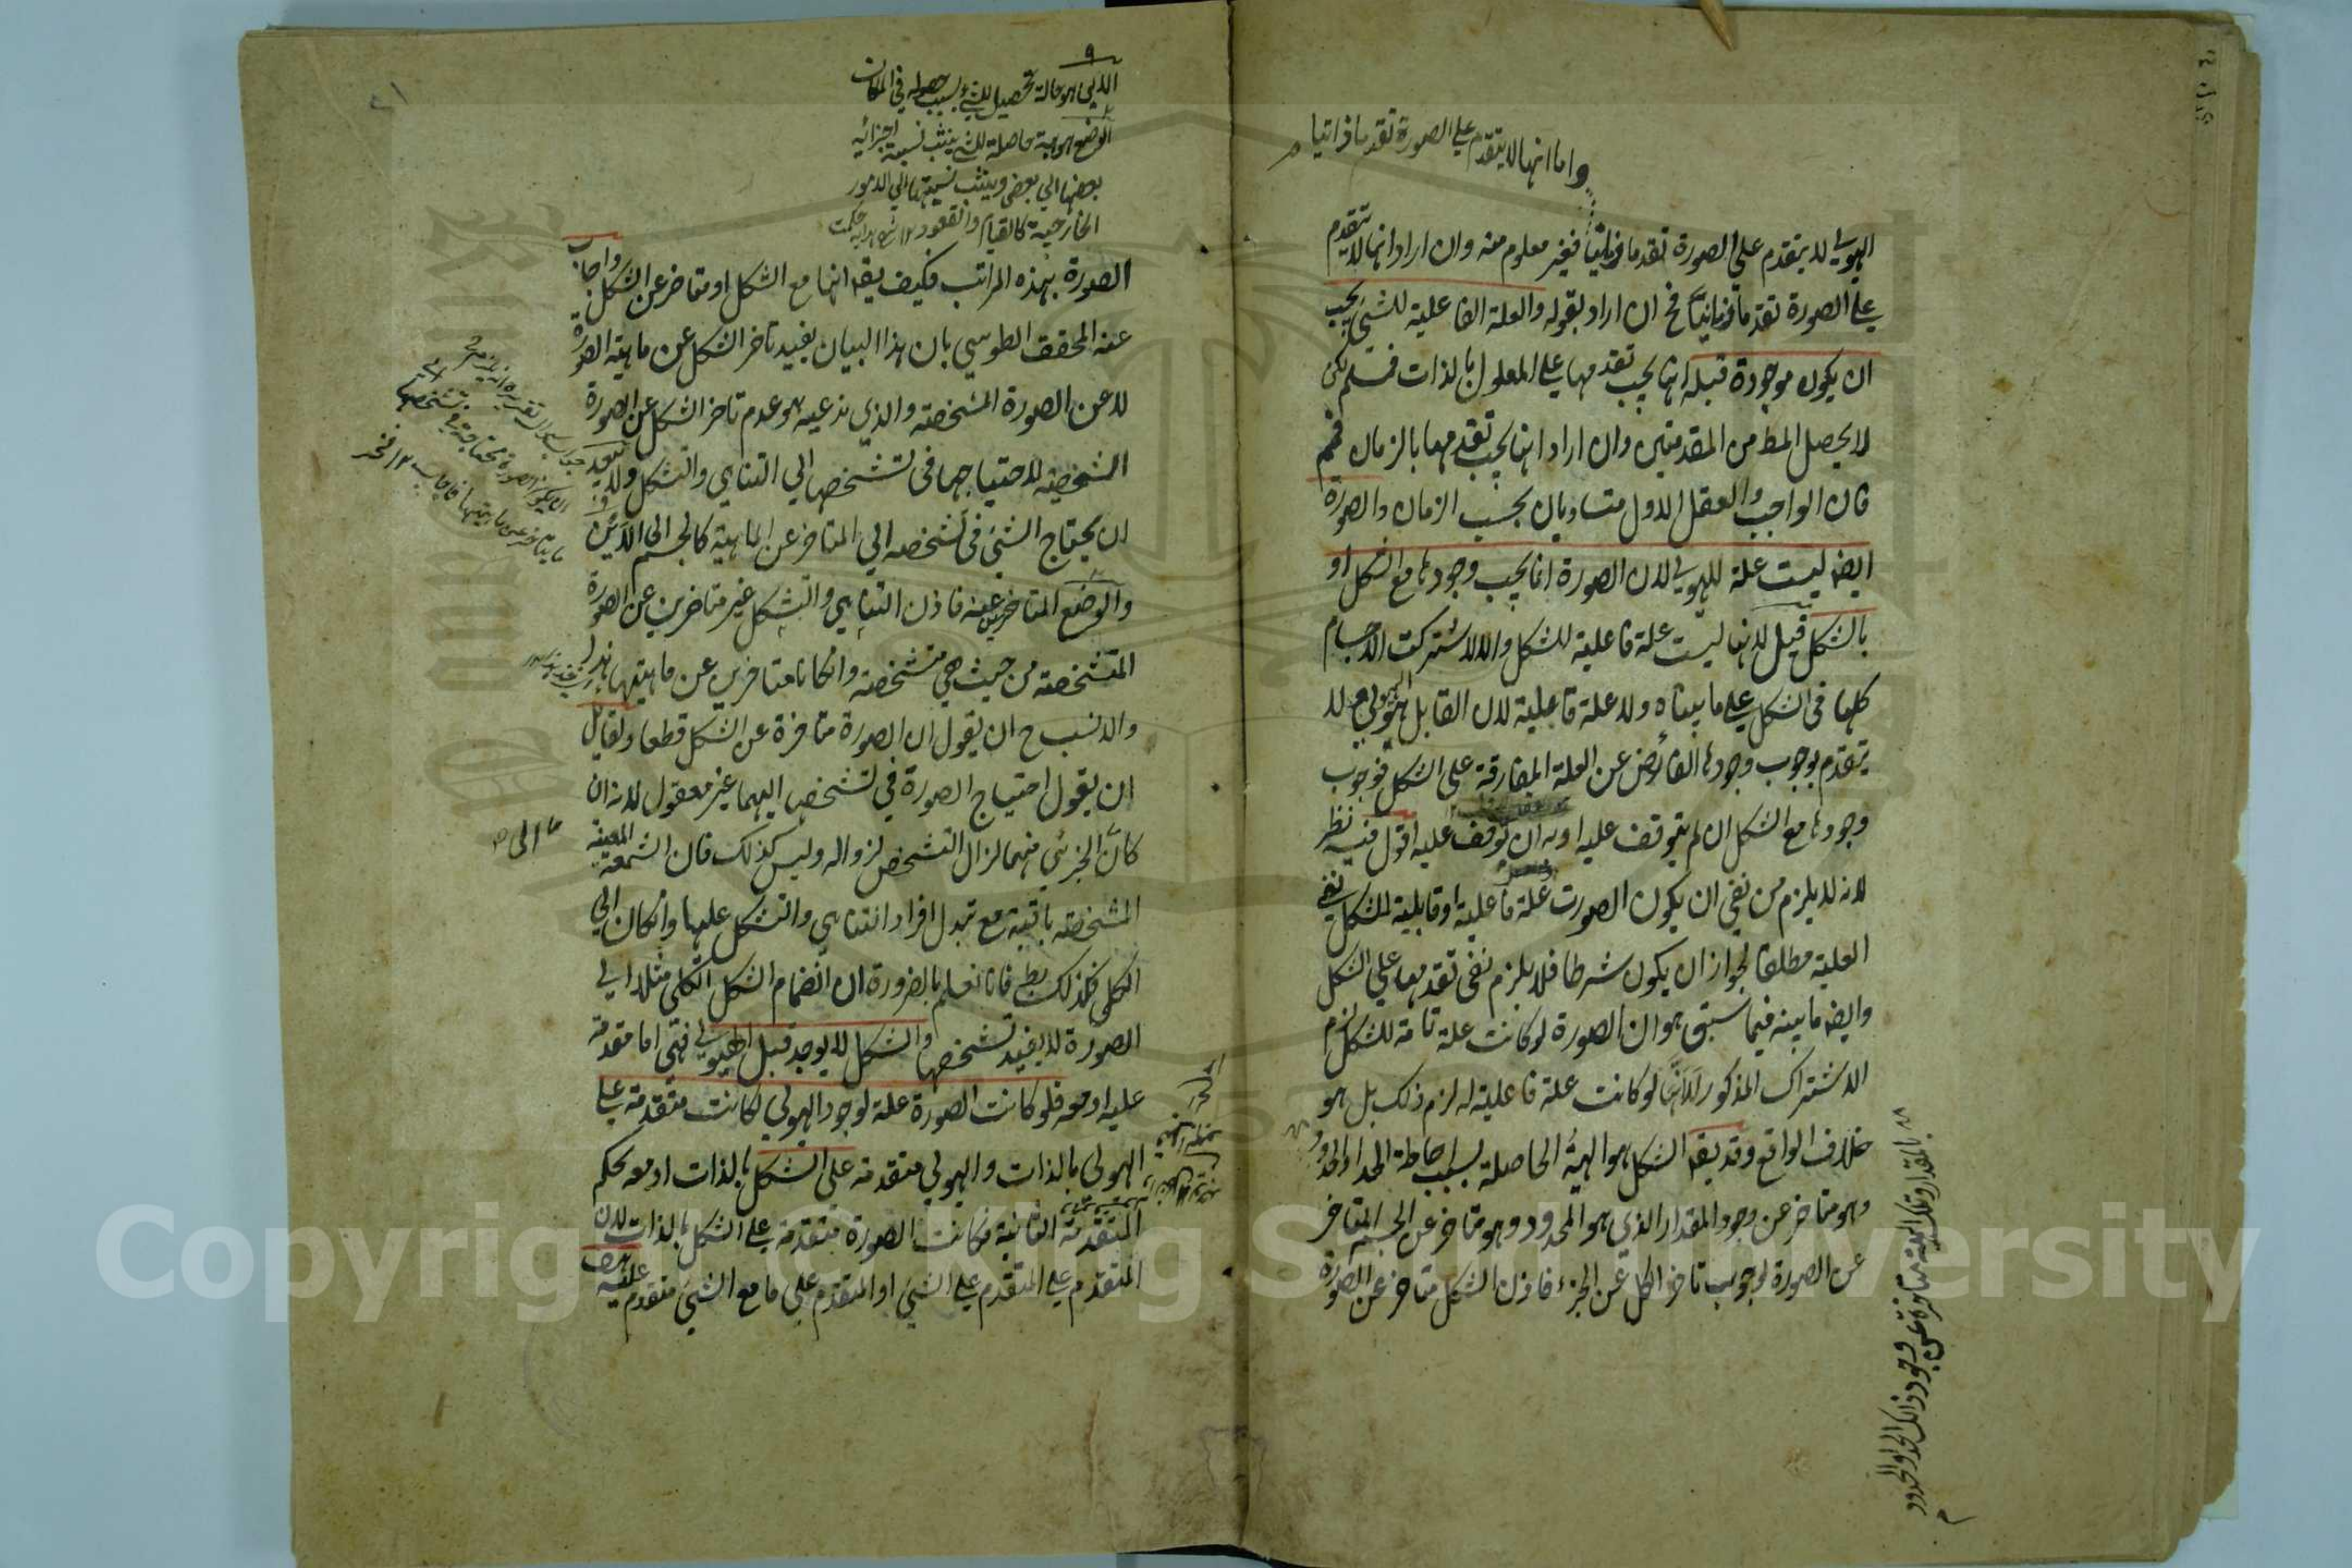 واما انها لا يتقدم على الصورة تقدما ذاتيا
الهيولى لا يتقدم على الصورة تقدما زمانيا فغير معلوم منه وان اراد انها لا يتقدم
على الصورة تقدما زمانيا فح ان اراد بقوله والعلة الفاعلية للشئ يجب
ان يكون موجودة قبله انها يجب تقدمها على المعلول بالذات فمسلم لكن
لا يحصل المط من المقدمتين وان اراد انها يجب تقدمها بالزمان فمم
فان الواجب والعقل الاول متساويان بحسب الزمان والصورة
ايضه ليست علة للهيولى لان الصورة انما يجب وجودها مع الشكل او
بالشكل قيل لانها ليست علة فاعلية للشكل والا لاشتركت الاجسام
كلها فى الشكل على ما بيناه ولا علة قابلية لان القابل هو الهيولى فلا
يتقدم بوجوب وجودها الفائض عن العلة المفارقة على الشكل فوجوب
وجودها مع الشكل ان لم يتوقف عليه او به ان توقف عليه اقول فيه نظر
لانه لا يلزم من نفى ان يكون الصورت علة فاعلية او قابلية للشكل نفى
العلية مطلقا لجواز ان يكون شرطا فلا يلزم نفى تقدمها على الشكل
وايضه ما بينه فيما سبق هو ان الصورة لو كانت علة تامة للشكل لزم
الاشتراك المذكور لا انها لو كانت علة فاعلية له لزم ذلك بل هو
خلاف الواقع وقد يقه الشكل هو الهيئة الحاصلة بسبب احاطة الحد او الحدود
وهو متاخر عن وجود المقدار الذى هو المحدود وهو متاخر عن الجسم المتاخر
عن الصورة لوجوب تاخر الكل عن الجزء فاذن الشكل متاخر عن الصورة
الاين هو حالة تحصيل للشئ بسبب حصوله فى المكان
الوضع هو هيئة حاصلة للشئ بسبب نسبة اجزائه
بعضها الى بعض وبسبب نسبتها الى الامور
الخارجية كالقيام والقعود ١٢
الصورة بهذه المراتب فكيف يقه انها مع الشكل او متاخر عن الشكل واجاب
عنه المحقق الطوسي بان هذا البيان يفيد تاخر الشكل عن ماهية الصورة
لا عن الصورة المشخصة والذي ندعيه هو عدم تاخر الشكل عن الصورة
المشخصة لاحتياجها فى تشخصها الى التناهي والشكل ولا يبعد
ان يحتاج الشئ فى تشخصه الى المتاخر عن الماهية كالجسم الى الاين
والوضع المتاخرين عنه فاذن التناهي والتشكل غير متاخرين عن الصورة
المتشخصة من حيث هي متشخصة وان كانا متاخرين عن ماهيتها
والانسب ح ان يقول ان الصورة متاخرة عن الشكل قطعا ولقايل
ان يقول احتياج الصورة في تشخصها اليهما غير معقول لانه ان
كان الجزئي منهما لزال التشخص لزواله وليس كذلك فان الشمعة المعينة
المشخصة باقية مع تبدل افراد التناهي والتشكل عليها وان كان الى
الكلى فكذلك بط فانا نعلم بالضرورة ان انضمام الشكل الكلى مثلا الى
الصورة لا يفيد تشخصها والشكل لا يوجد قبل الهيولى فهى اما مقدمة
عليه او معه فلو كانت الصورة علة لوجود الهيولى لكانت متقدمة على
الهيولى بالذات والهيولى متقدمة على الشكل بالذات او معه بحكم
المتقدمة الثانية فكانت الصورة متقدمة على الشكل بالذات لان
المتقدم على المتقدم على الشئ او المتقدم على ما مع الشئ متقدم عليه